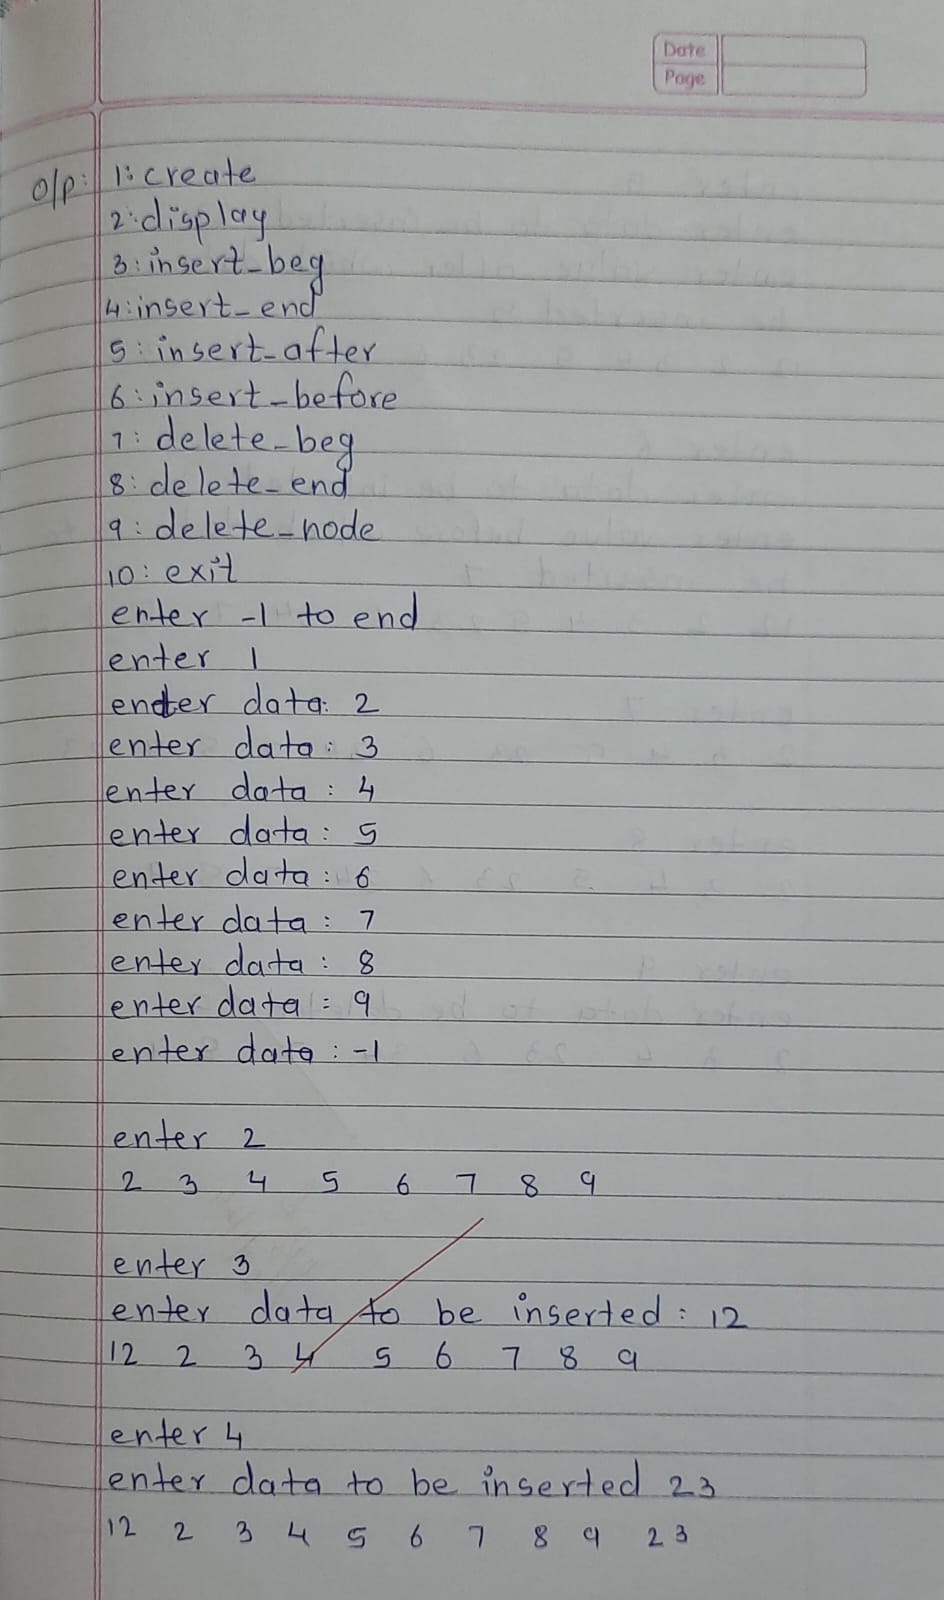 Date
Page
o/p: 1: create
2: display
3: insert_beg
4: insert_end
5: insert_after
6: insert_before
7: delete_beg
8: delete_end
9: delete_node
10: exit
enter -1 to end
enter 1
endter data: 2
enter data: 3
enter data: 4
enter data: 5
enter data: 6
enter data: 7
enter data: 8
enter data: 9
enter data: -1
enter 2
2 3 4 5 6 7 8 9
enter 3
enter data to be inserted: 12
12 2 3 4 5 6 7 8 9
enter 4
enter data to be inserted 23
12 2 3 4 5 6 7 8 9 23